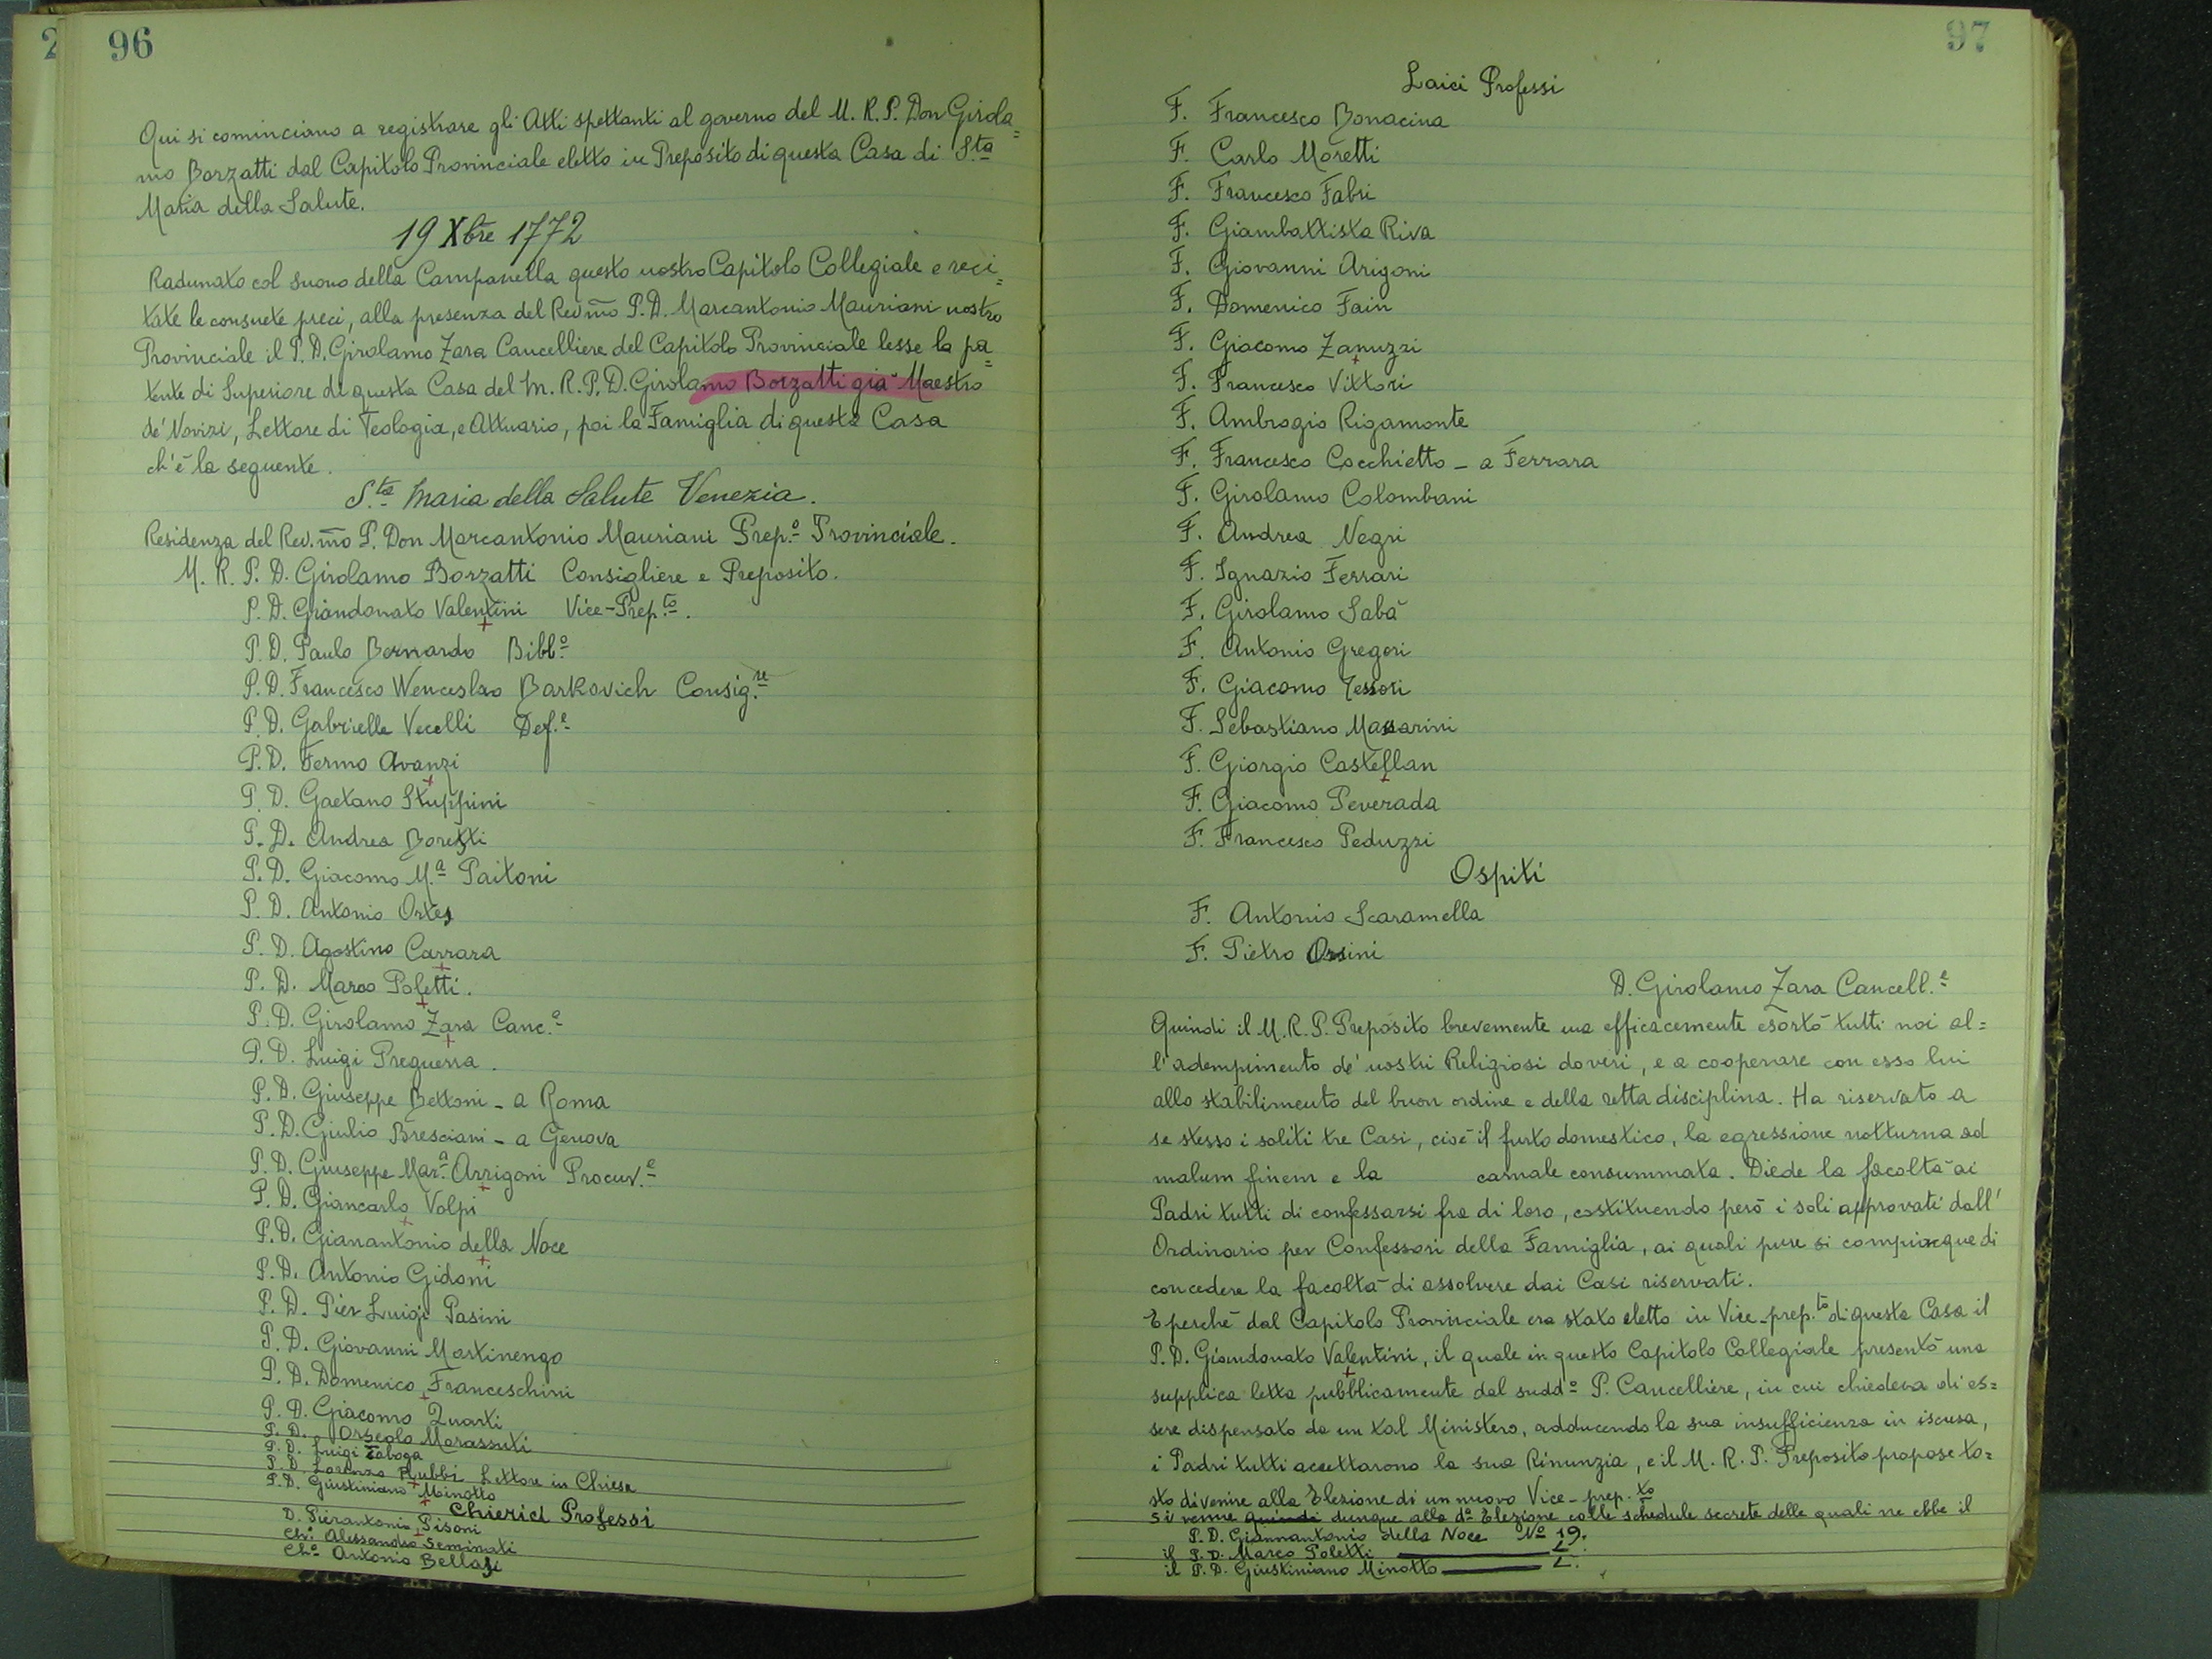 2
96
Qui si cominciano a registrare gli Atti spettanti al governo del M. R. P. Don Girola=
mo Borzatti dal Capitolo Provinciale eletto in Preposito di questa Casa di S.ta
Maria della Salute.
19 Xbre 1772
Radunato col suono della Campanella questo nostro Capitolo Collegiale e reci=
tate le consuete preci, alla presenza del Revmo P. D. Marcantonio Mauriani nostro
Provinciale il P. D. Girolamo Zara Cancelliere del Capitolo Provinciale lesse la pa=
tente di Superiore di questa Casa del M. R. P. D. Girolamo Borzatti già Maestro
de' Novizi, Lettore di Teologia, e Attuario, poi la Famiglia di questa Casa
ch'è la seguente.
S.ta Maria della Salute Venezia.
Residenza del Rev.mo P. Don Marcantonio Mauriani Prep.o Provinciale.
M. R. P. D. Girolamo Borzatti Consigliere e Preposito.
P. D. Giandonato Valentini Vice-Prep.to.
P. D. Paulo Bernardo Bibl.o
P. D. Francesco Wenceslao Barkovich Consig.re
P. D. Gabrielle Vecelli Def.e
P. D. Fermo Avanzi
P. D. Gaetano Stuppini
P. D. Andrea Boretti
P. D. Giacomo M.a Paitoni
P. D. Antonio Ortes
P. D. Agostino Carrara
P. D. Marco Poletti.
P. D. Girolamo Zara Canc.e
P. D. Luigi Preguerra.
P. D. Giuseppe Bettoni - a Roma
P. D. Giulio Bresciani - a Genova
P. D. Giuseppe Mar.a Arrigoni Procur.e
P. D. Giancarlo Volpi
P. D. Gianantonio della Noce
P. D. Antonio Gidoni
P. D. Pier Luigi Pasini
P. D. Giovanni Martinengo
P. D. Domenico Franceschini
P. D. Giacomo Quarti
P. D. Orseolo Marassuti
P. D. Luigi Taboga
P. D. Lorenzo Rubbi Lettore in Chiesa
P. D. Giustiniano Minotto
Chierici Professi
D. Pierantonio Pisoni
Ch.o Alessandro Seminati
Ch.o Antonio Bellasi
97
Laici Professi
F. Francesco Bonacina
F. Carlo Moretti
F. Francesco Fabri
F. Giambattista Riva
F. Giovanni Arigoni
F. Domenico Fain
F. Giacomo Zanuzzi
F. Francesco Vittori
F. Ambrogio Rigamonte
F. Francesco Cocchietto - a Ferrara
F. Girolamo Colombani
F. Andrea Negri
F. Ignazio Ferrari
F. Girolamo Sabà
F. Antonio Gregori
F. Giacomo Tessori
F. Sebastiano Massarini
F. Giorgio Castellan
F. Giacomo Peverada
F. Francesco Peduzzi
Ospiti
F. Antonio Scaramella
F. Pietro Orsini
D. Girolamo Zara Cancell.e
Quindi il M. R. P. Preposito brevemente ma efficacemente esortò tutti noi al=
l'adempimento de' nostri Religiosi doveri, e a cooperare con esso lui
allo stabilimento del buon ordine e della retta disciplina. Ha riservato a
se stesso i soliti tre Casi, cioè il furto domestico, la egressione notturna ad
malum finem e la carnale consummata. Diede la facoltà ai
Padri tutti di confessarsi fra di loro, costituendo però i soli approvati dall'
Ordinario per Confessori della Famiglia, ai quali pure si compiacque di
concedere la facoltà di assolvere dai Casi riservati.
E perchè dal Capitolo Provinciale era stato eletto in Vice-prep.to di questa Casa il
P. D. Giandonato Valentini, il quale in questo Capitolo Collegiale presentò una
supplica letta pubblicamente dal sudd.o P. Cancelliere, in cui chiedeva di es=
sere dispensato da un tal Ministero, adducendo la sua insufficienza in iscusa,
i Padri tutti accettarono la sua Rinunzia, e il M. R. P. Preposito propose to=
sto di venire alla Elezione di un nuovo Vice-prep.to
si venne quindi dunque alla d.a Elezione colle schedule secrete delle quali ne ebbe il
P. D. Giannantonio della Noce No 19.
il P. D. Marco Poletti 1.
il P. D. Giustiniano Minotto 1.